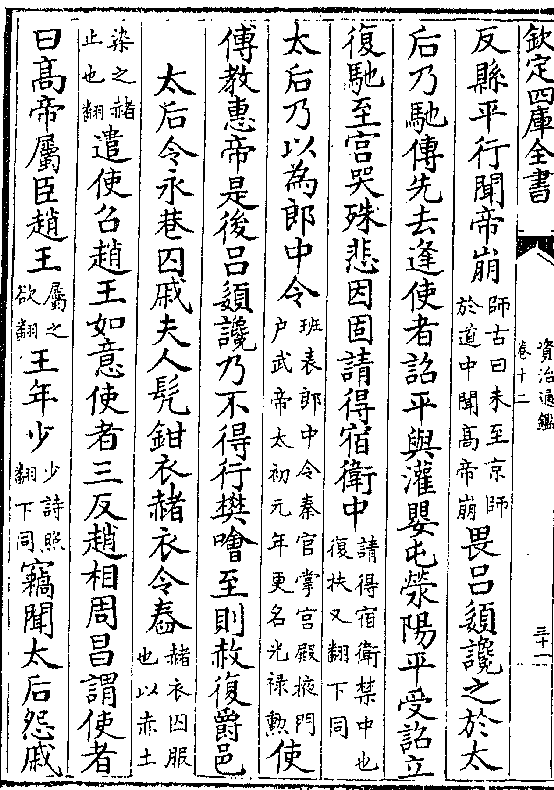 欽定四庫全書
資治通鑑
卷十二
三十一
反縣平行聞帝崩師古曰未至京師於道中聞高帝崩畏呂嬃讒之於太
后乃馳傳先去逢使者詔平與灌嬰屯滎陽平受詔立
復馳至宫哭殊悲因固請得宿衛中請得宿衛禁中也復扶又翻下同
太后乃以為郎中令班表郎中令秦官掌宫殿掖門户武帝太初元年更名光禄勲使
傅教惠帝是後呂嬃讒乃不得行樊噲至則赦復爵邑
太后令永巷囚戚夫人髠鉗衣赭衣令舂赭衣囚服也以赤土
染之赭止也翻遣使召趙王如意使者三反趙相周昌謂使者
曰髙帝屬臣趙王屬之欲翻王年少少詩照翻下同竊聞太后怨戚